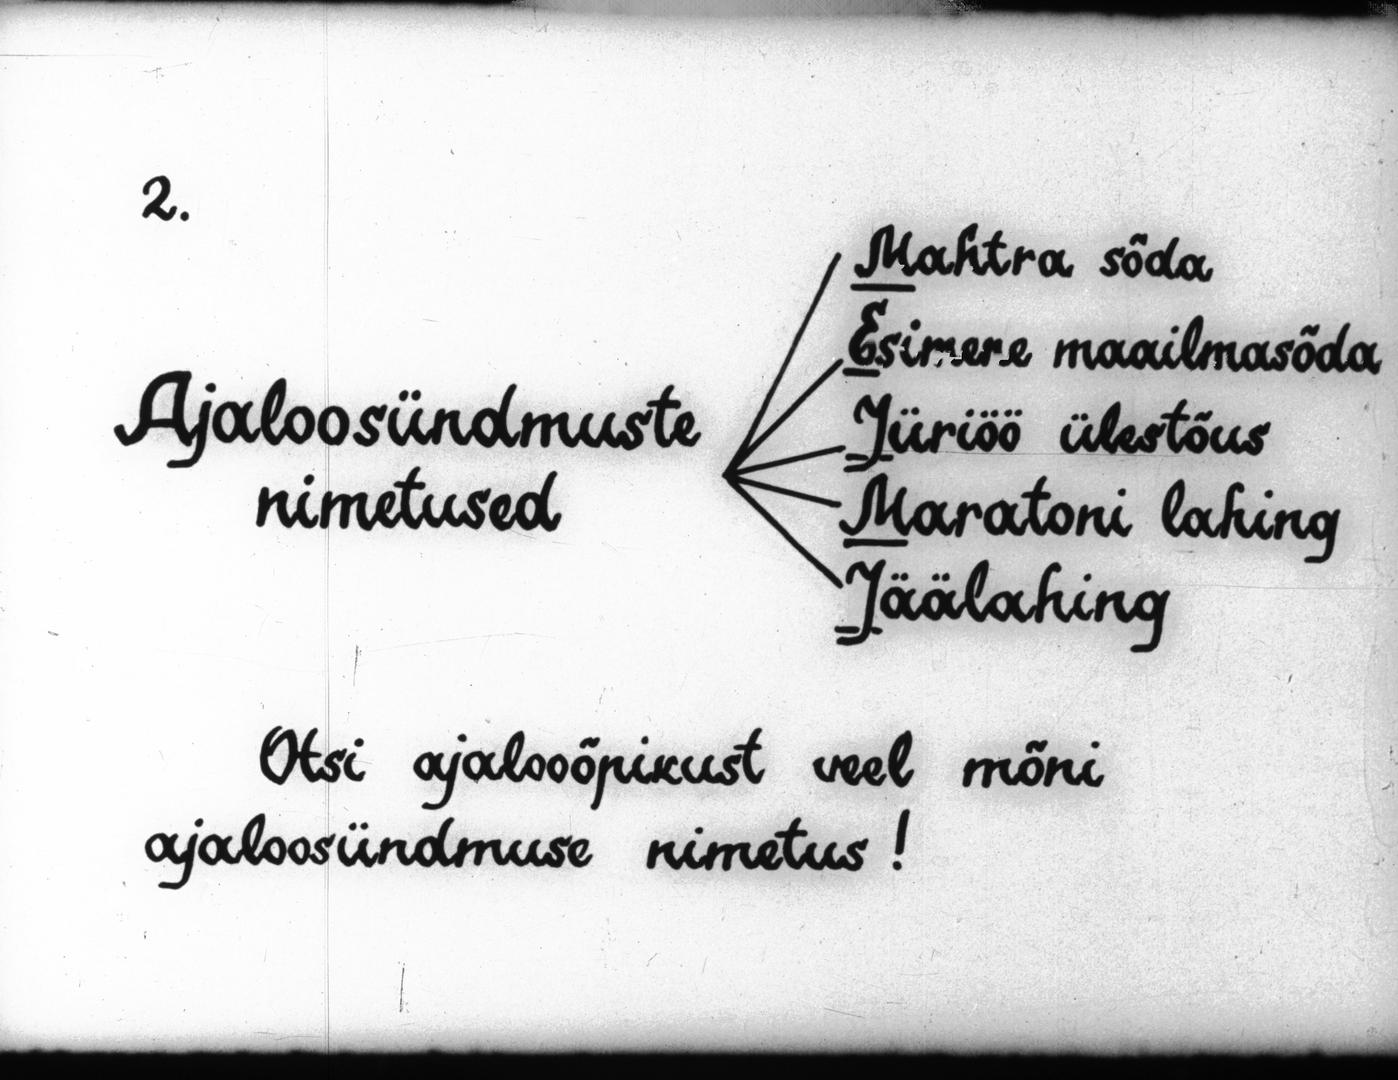 2.
Ajaloosündmuste
nimetused
Mahtra sõda
Esimene maailmasõda
Jüriöö ülestõus
Maratoni lahing
Jäälahing
Otsi ajalooõpikust veel mõni
ajaloosündmuse nimetus!